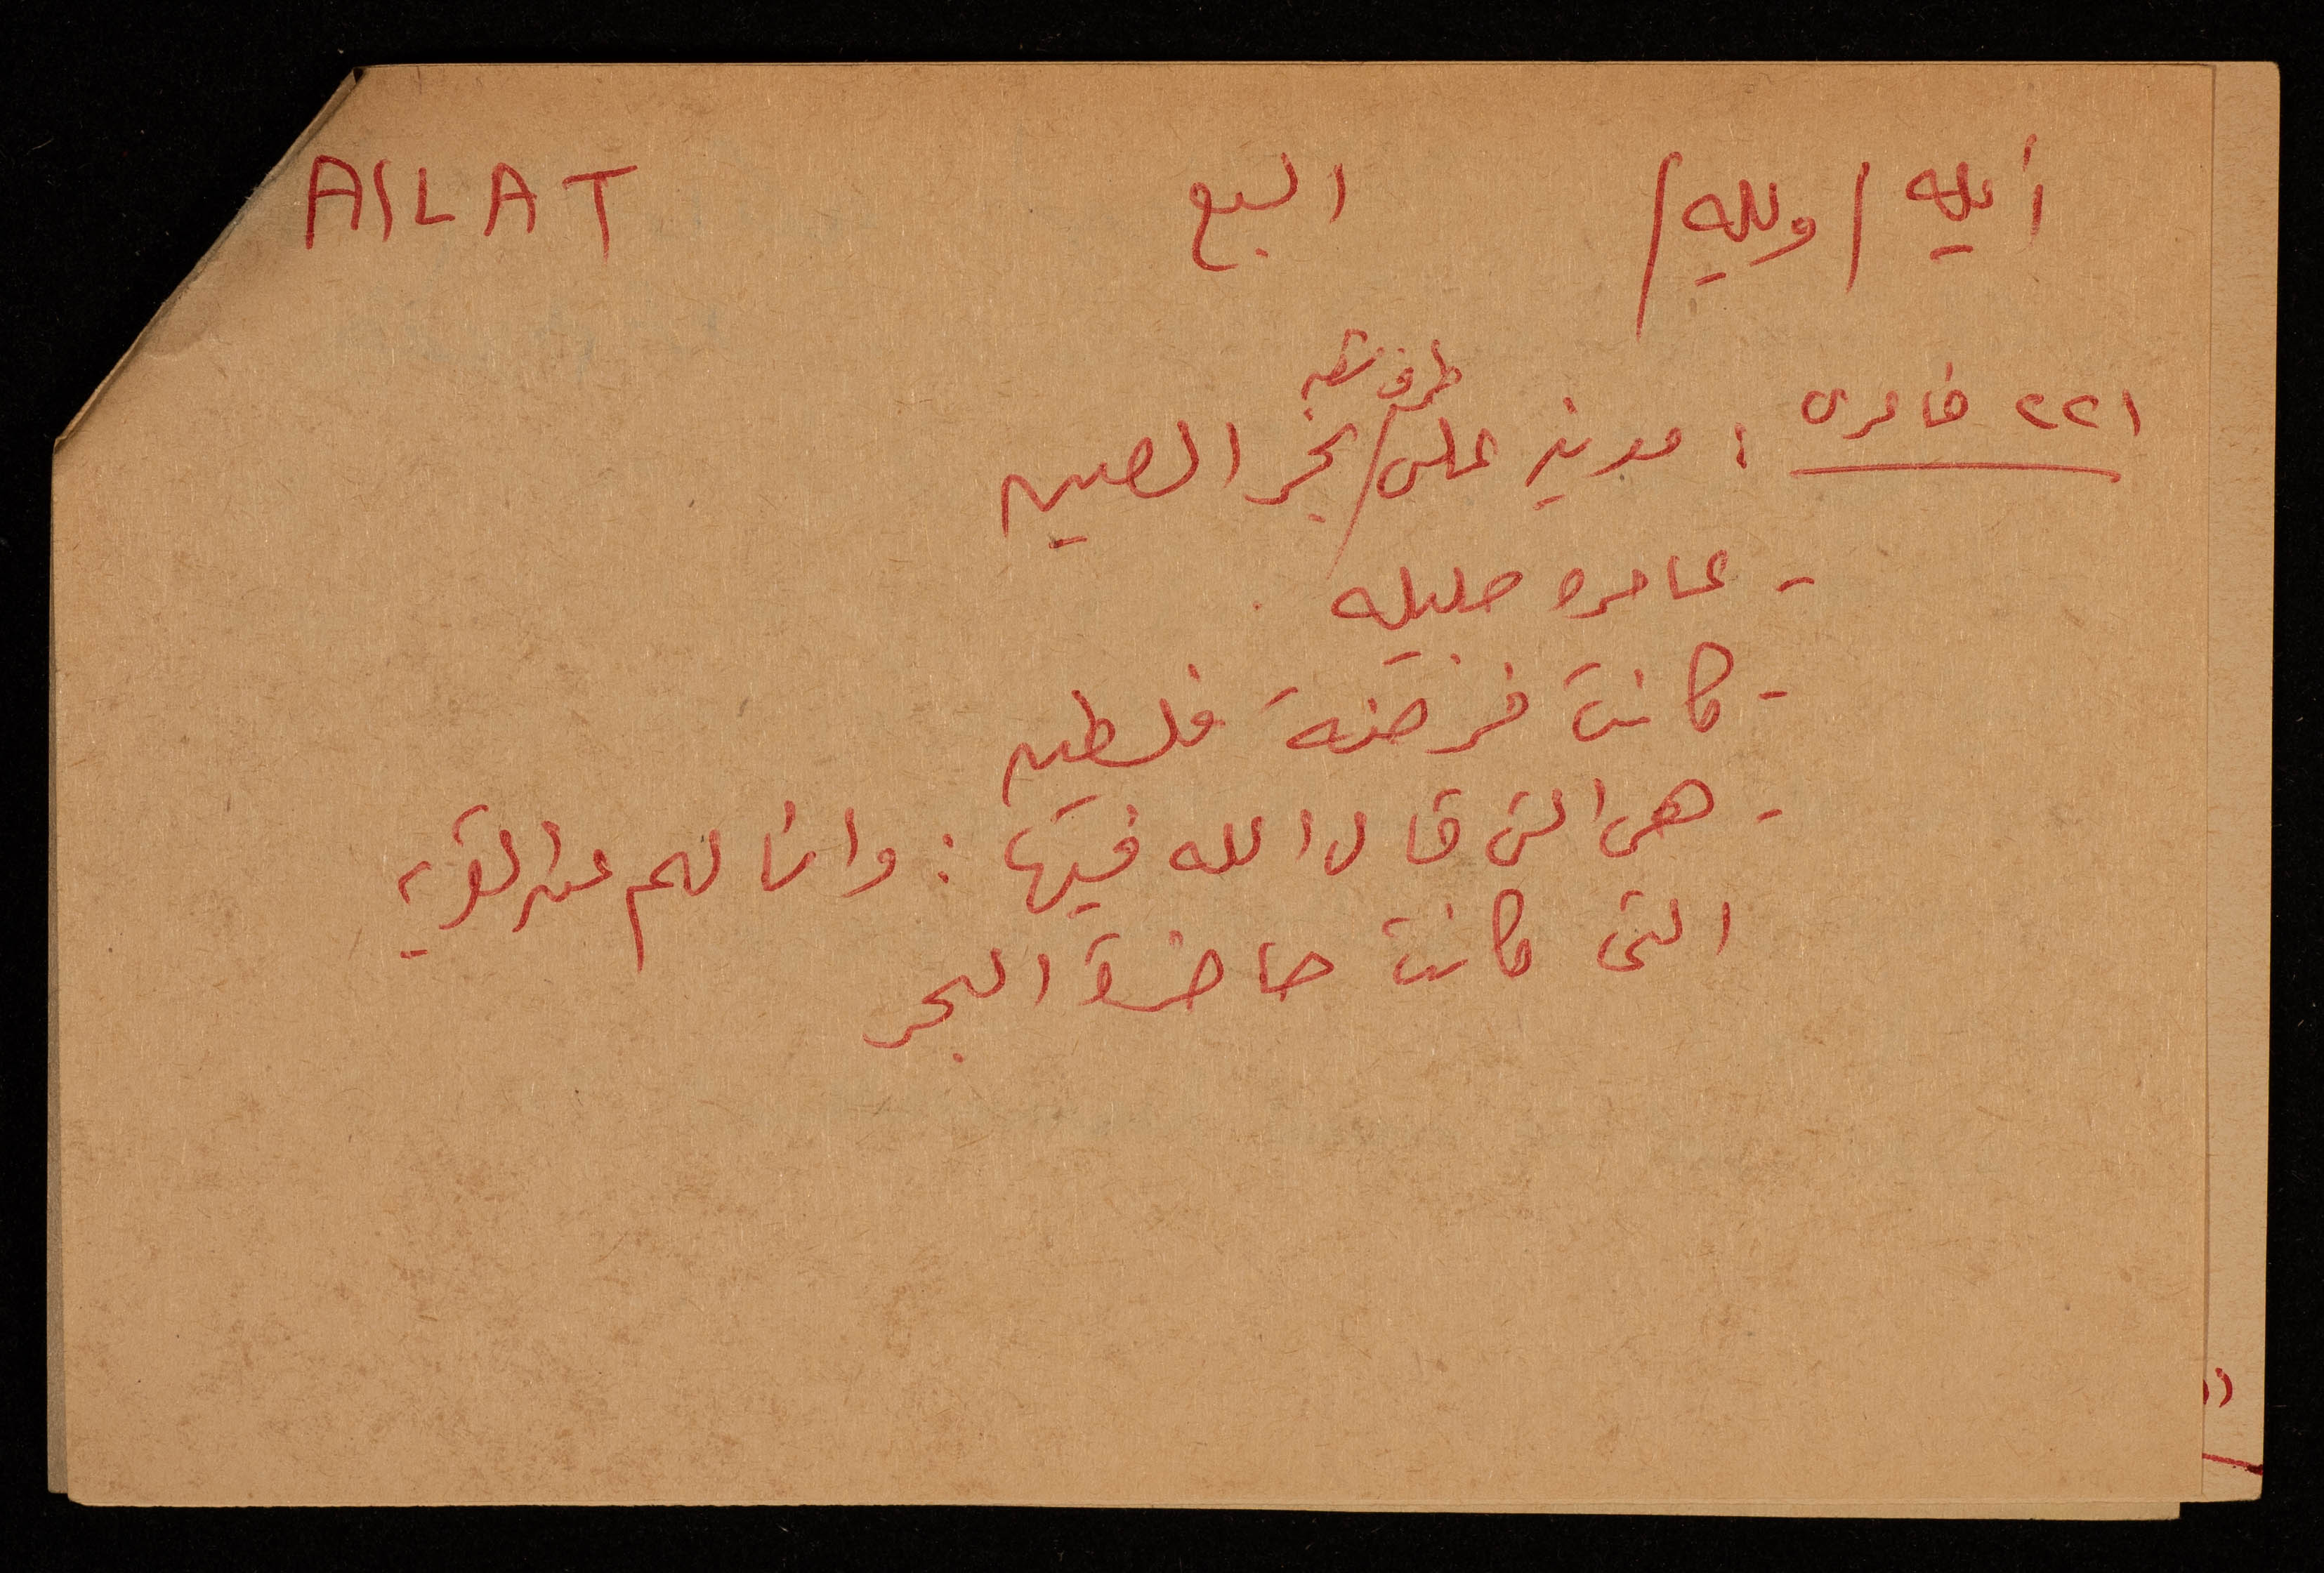 أيله / ويله / السبع AILAT
٢٢١ : مدينة على / طرف شعبه / بحر الصين
- عامره جليله
- كانت فرضة فلسطين
- هى التى قال الله فيها : واسالهم عن القريه
التى كانت حاضرة البحر